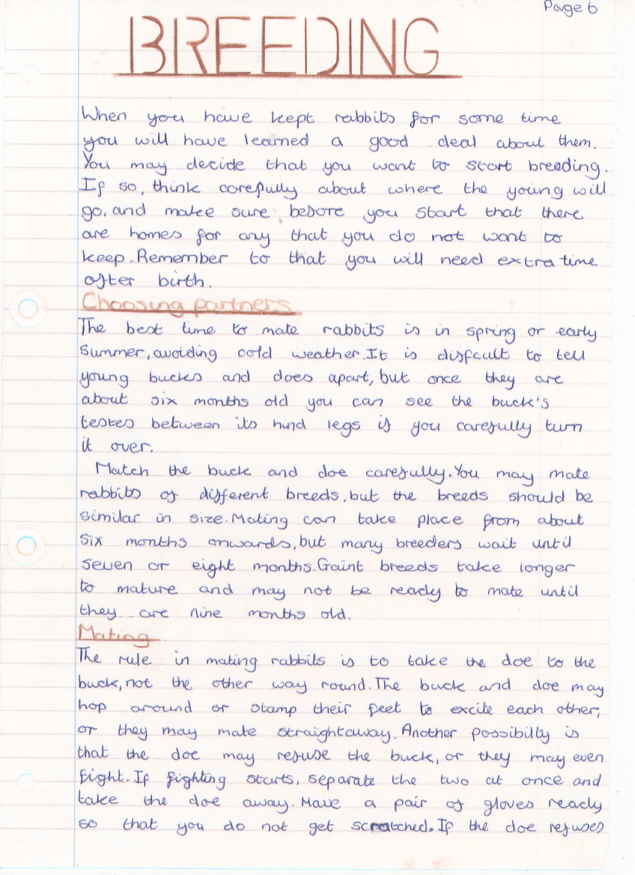 Page 6
BREEDING
When you have kept rabbits for some time
you will have learned a good deal about them.
You may decide that you want to start breeding.
If so, think carefully about where the young will
go, and make sure, before you start that there
are homes for any that you do not want to
keep. Remember to that you will need extra time
after birth.
Choosing partners
The best time to mate rabbits is in spring or early
Summer, avoiding cold weather. It is disfcult to tell
young bucks and does apart, but once they are
about six months old you can see the buck's
testes between its hind legs if you carefully turn
it over.
Match the buck and doe carefully. You may mate
rabbits of different breeds, but the breeds should be
similar in size. Mating can take place from about
six months onwards, but many breeders wait until
seven or eight months. Gaint breeds take longer
to mature and may not be ready to mate until
they are nine months old.
Mating
The rule in mating rabbits is to take the doe to the
buck, not the other way round. The buck and doe may
hop around or stamp their feet to excite each other,
or they may mate straightaway. Another possibilty is
that the doe may refuse the buck, or they may even
fight. If fighting starts, separate the two at once and
take the doe away. Have a pair of gloves ready
so that you do not get scratched. If the doe refuses